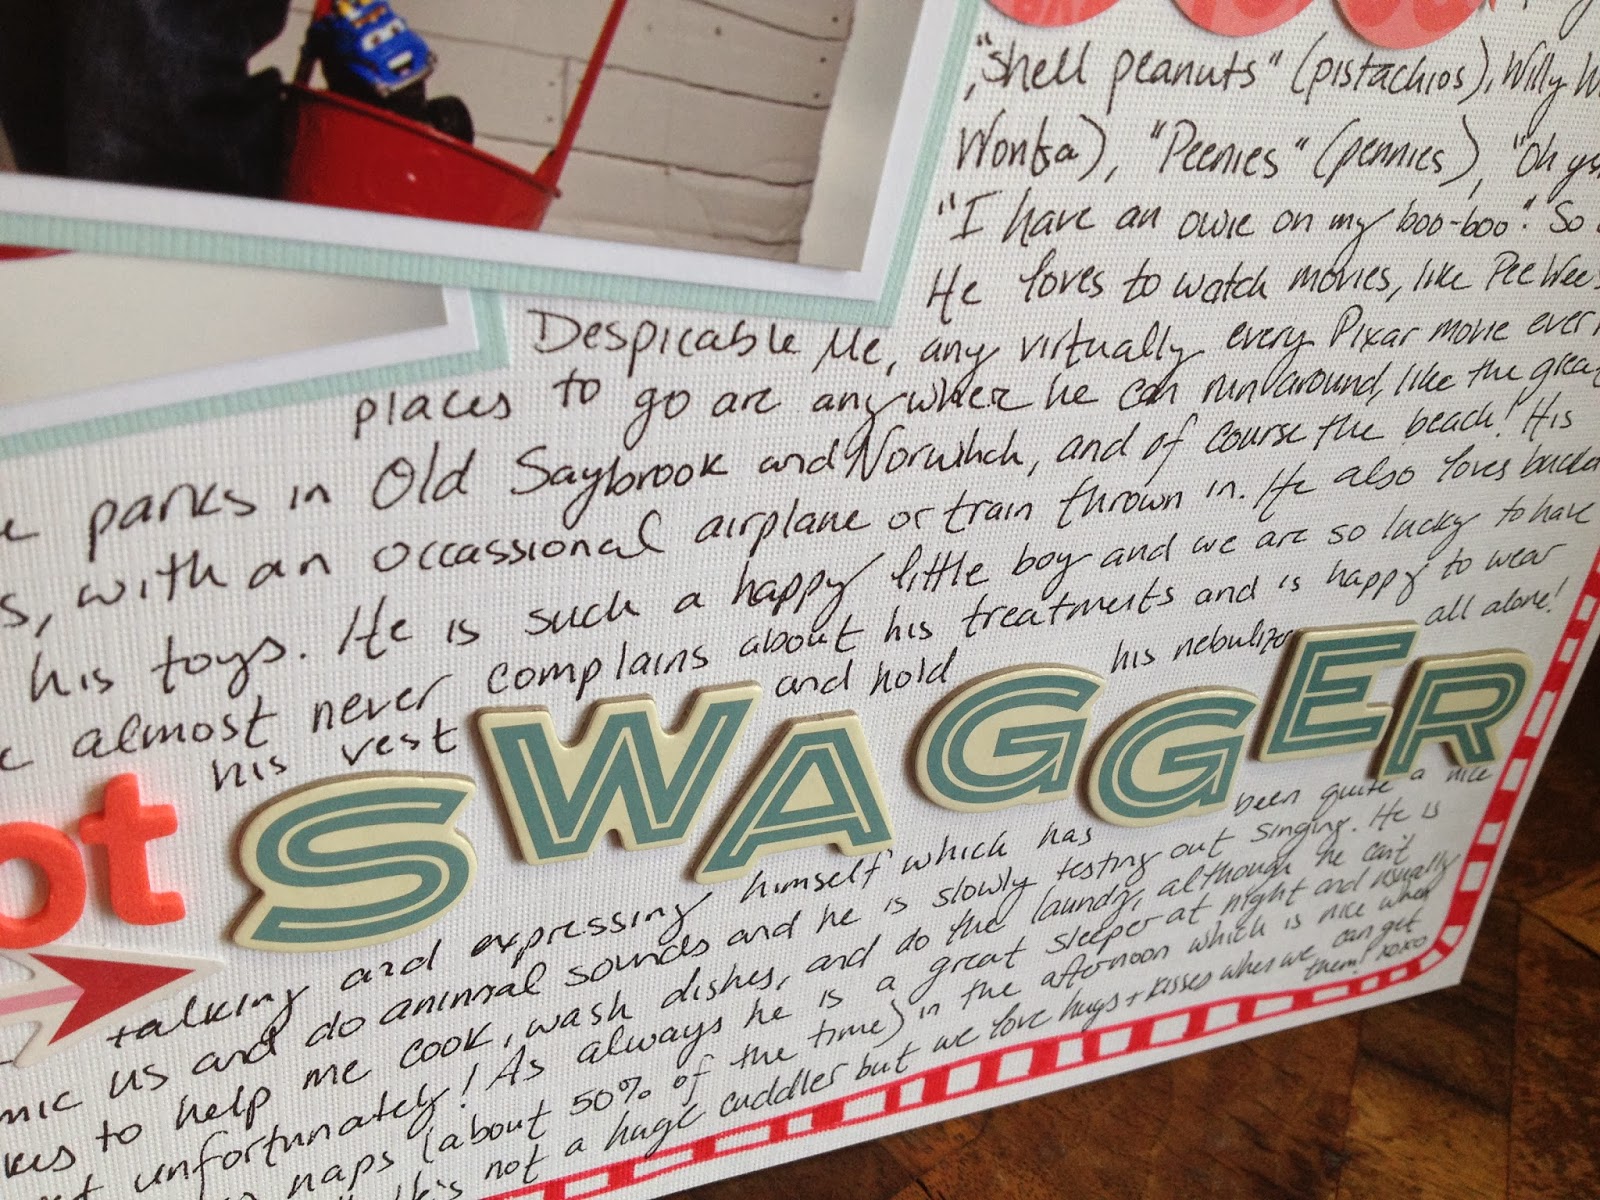 "shell peanuts" (pistachios), Willy
Wonka), "Peenies" (pennies), "Oh
"I have an owie on my boo-boo". So
He loves to watch movies, like Pee Wee's
Despicable Me, any virtually every Pixar movie ever
places to go are anywhere he can run around, like the great
parks in Old Saybrook and Norwhich, and of course the beach! His
, with an occassional airplane or train thrown in. He also loves
his toys. He is such a happy little boy and we are so lucky to have
almost never complains about his treatments and is happy to wear
his vest and hold his nebulizer all alone!
ot SWAGGER
talking and expressing himself which has been quite a nice
mic us and do animal sounds and he is slowly testing out singing. He is
kes to help me cook, wash dishes, and do the laundry, although he can't
unfortunately! As always he is a great sleeper at night and usually
naps (about 50% of the time) in the afternoon which is nice when
not a huge cuddler but we love hugs + kisses when we can get
them! xoxo